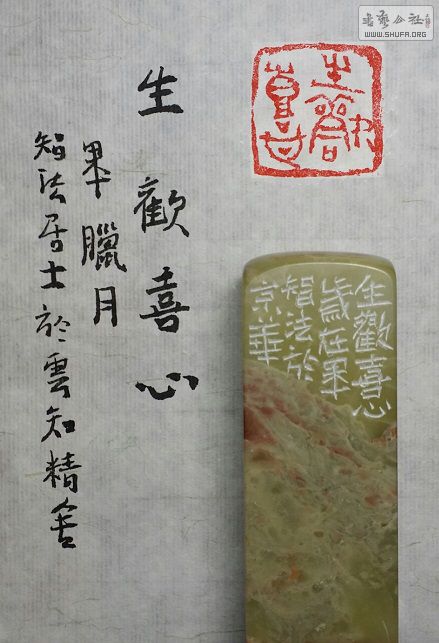 書藝公社
WWW.SHUFA.ORG
生歡
喜心
生歡喜心
臘月
智法居士於雲知精舍
生歡喜心
歲在
智法於
京華